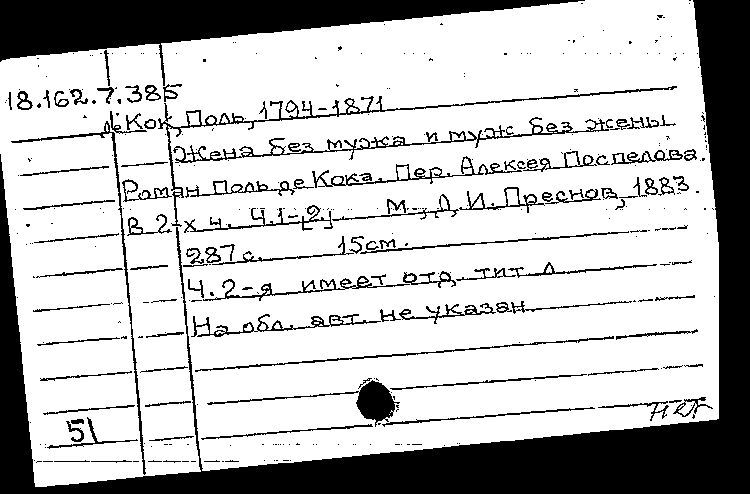 18.162.7.385
де Кок, Поль, 1794-1871
Жена без мужа и муж без жены
Роман Поль де Кока. Пер. Алексея Поспелова.
В 2-х ч. Ч.1-[2]. М., Д.И. Преснов, 1883.
287 с. 15см.
Ч. 2-я имеет отд. тит л
На обл. авт. не указан.
51